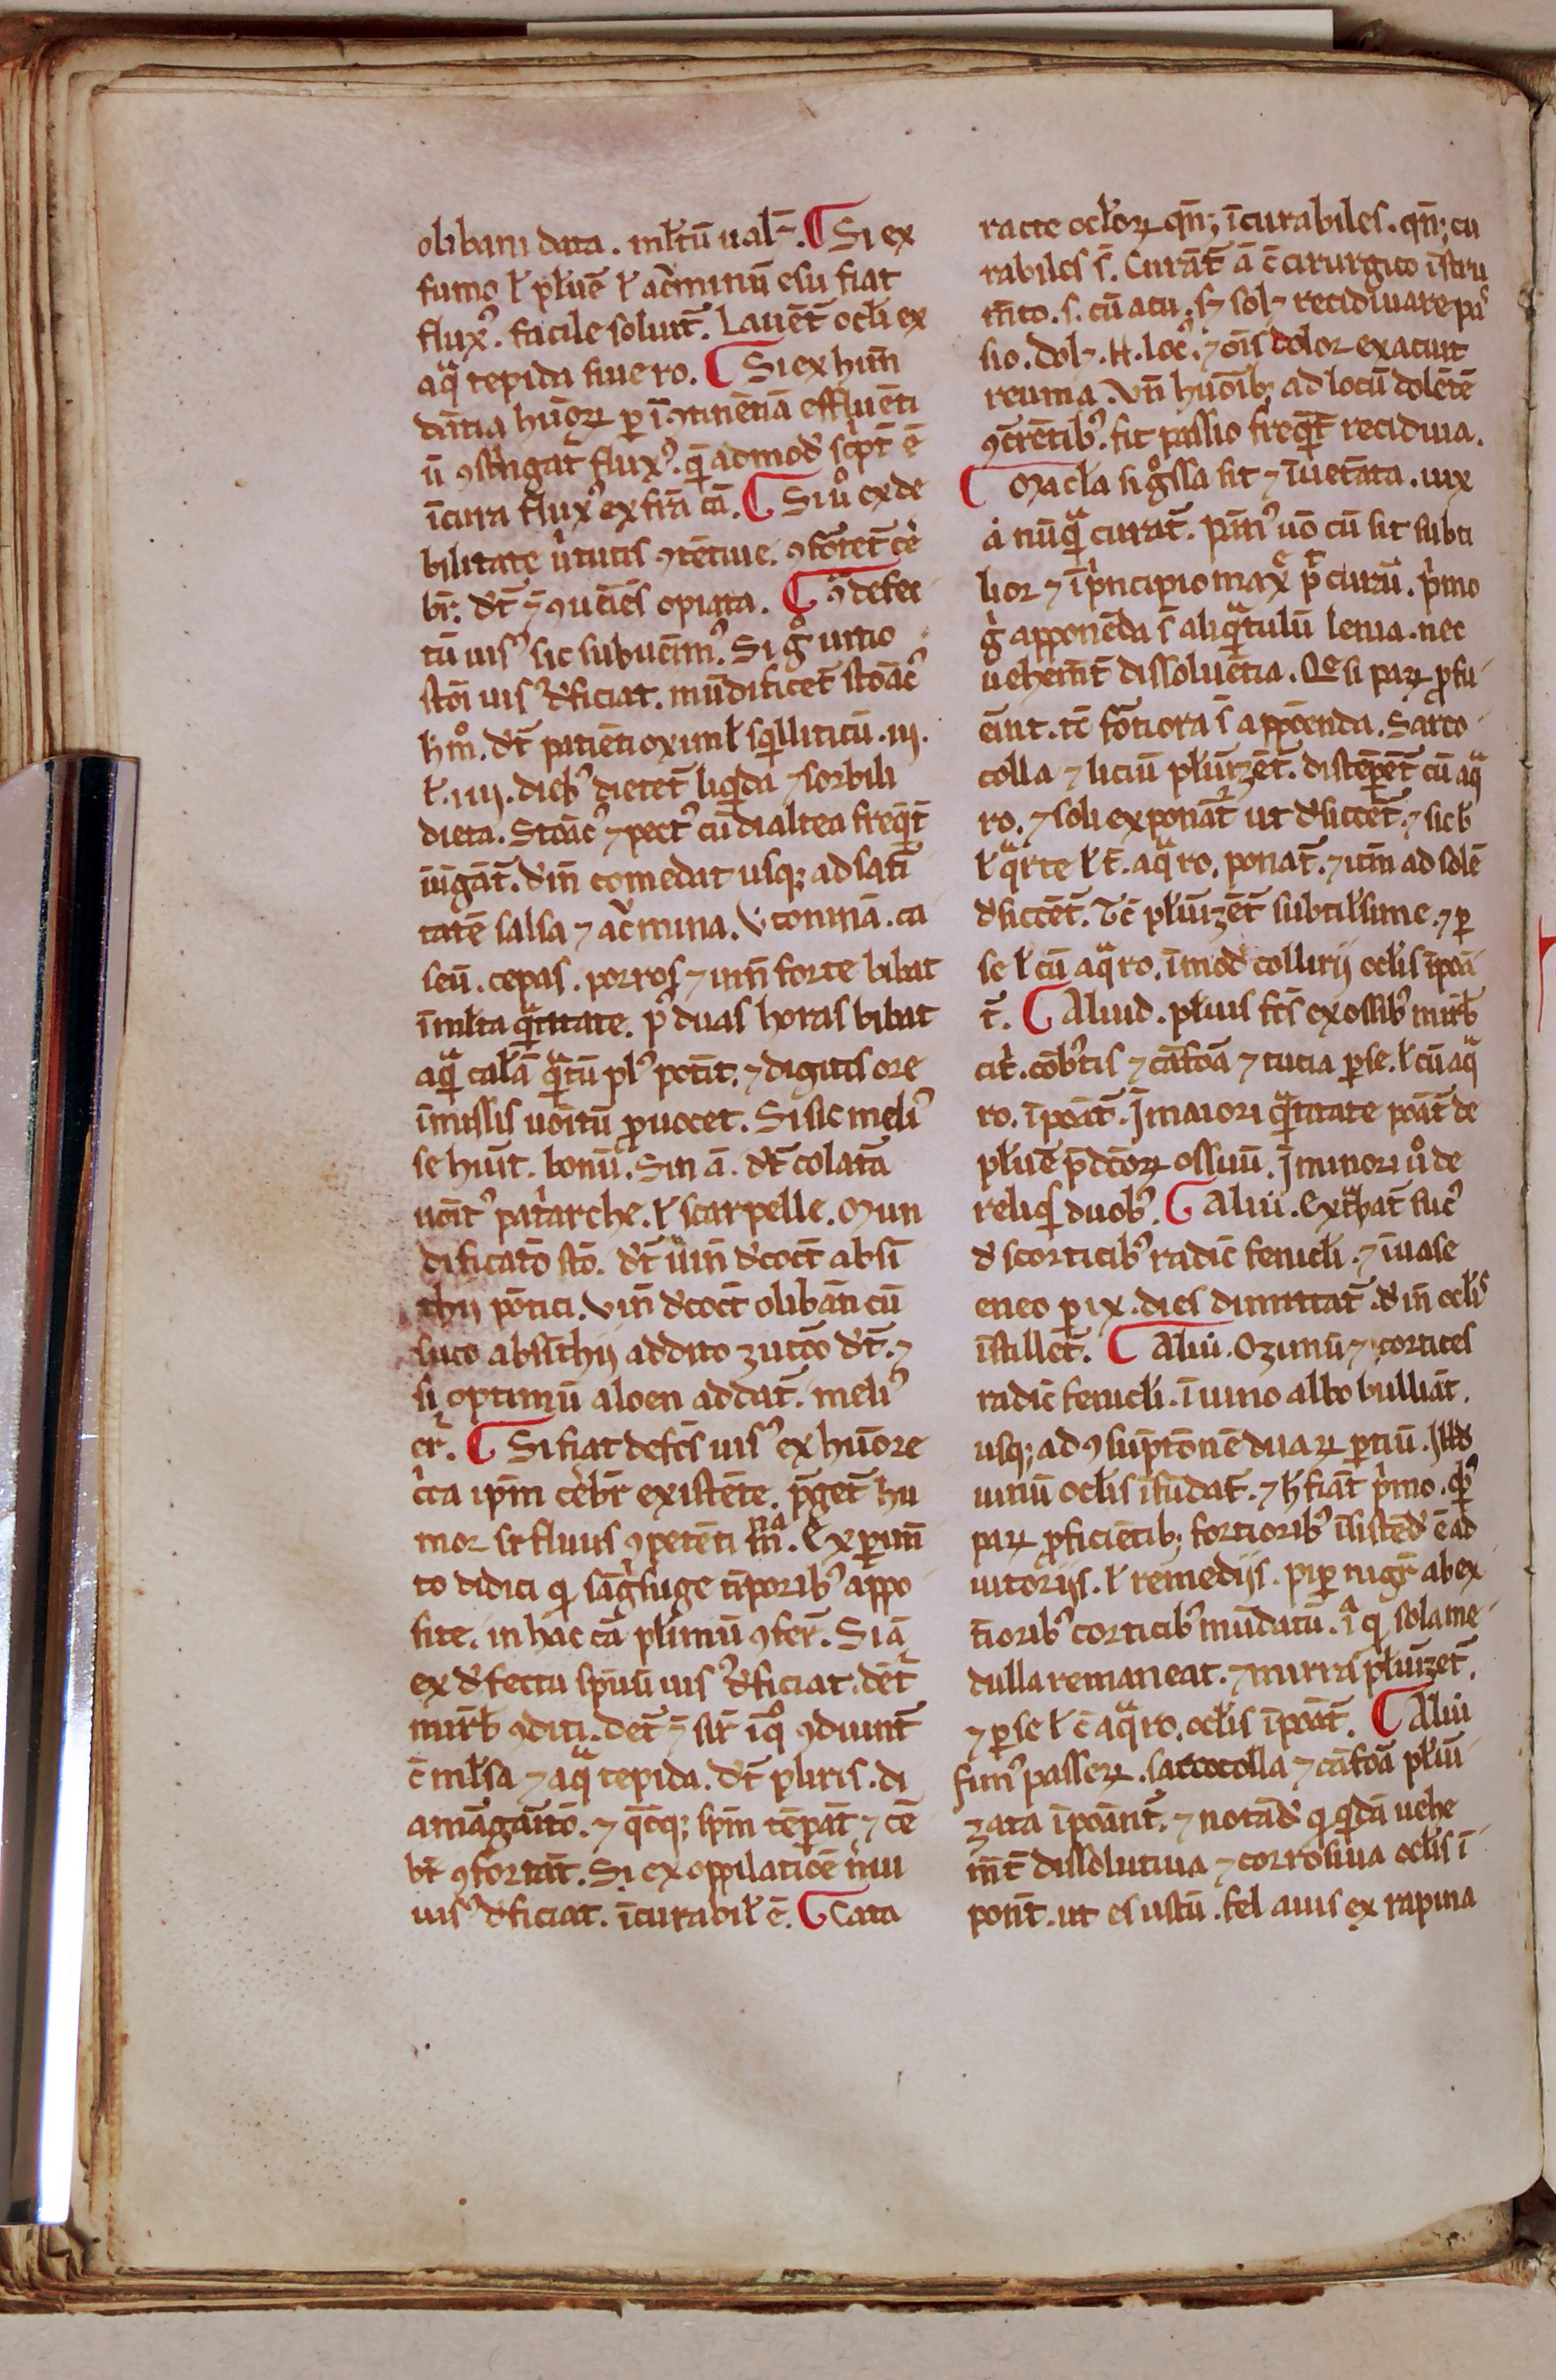 olibani data. ml̄tū ual᷑. ¶ Si ex
fumo ł pl̄ue ł ac᷑minū esu fiat
flux᷒. facile soluit᷑. Lauēt᷑ ocl̄i ex
aqͣ tepida siue ro. ¶ Si ex hun̄
dātia hūoꝝ ꝑ ꝯtinētiā effluēti
ū ꝯst̄ngat᷑ flux᷒. qͣ admod᷑ sc̄pt᷑ ē
ī cura flux᷒ ex fr̄a cā. ¶ Si uͦ ex de
bilitate u᷑tutis ꝯtētiue. ꝯfortet᷑ cē
br᷑. dt᷑ opiata. ¶ defec
tū uis᷒ sic subuenīm᷒. Si gͦ uitio
stōi uis᷒ d᷑ficiat. mūdificet᷑ stōac᷒
h̄ mͦ. dt᷑ patiēti oximl̄ sqͥlliticū. iij.
ł. iiij. dieb᷒ dietet᷑ liqͥda ⁊ sorbili
dieta. Stōac᷒ ⁊ pect᷒ cū dialtea freqͣt᷑
iūgāt᷑. dein̄ comedat usqꝫ ad sati
tatē salsa ⁊ ac᷑mina. Vt ꝯmā. ca
seū. cepas. porros ⁊ uin̄ forte bibat
ī ml̄ta qͣntitate. p᷒ duas horas bibat
aqͣ cal̄ā qͣtū pl᷒ pot᷑it. ⁊ digitis ore
īmissis uōitū ꝓuocet. Si sic meli᷒
se hu᷑it. bonū. Sin ā. dt᷑ colata
uōit᷒ pat᷑arche. ł scarpelle. Mun
dificato stō. dt᷑ uin̄ d᷑coct᷑ absi
thij pōtici. Vin̄ d᷑coct᷑ olibāi cū
suco absīthij addito zucco dt᷑. ⁊
si optimū aloen addat᷑. meli᷒
er᷑. ¶ Si fiat defc̄s uis᷒ ex hūore
c᷑ca ip̄m ceb᷑r existēte. p᷒get᷑ hu
mor suꝑfluus ꝯpetēti mͣ. Expim̄
to didici qͥ sāgͥsuge tīporib᷒ appo
site. in hac cā pl̄imū ꝯfer᷑. Si ā
ex d᷑fectu spūū uis᷒ d᷑ficiat. det᷑
mirb᷑ ꝯditi. det᷑ sir᷑ ī qͦ ꝯdiunt᷑
c̄ ml̄sa ⁊ aqͣ tepida. dt᷑ pliris. di
amāgaito. ⁊ qͣcqꝫ sp̄m tēpāt ⁊ ce
br᷑ ꝯfortāt. Si ex oppilatiōe n᷑ui
uis᷒ d᷑ficiat. īcurabil̄ ē. ¶ Cata
racte ocl̄oꝝ qn̄qꝫ īcurabiles. qn̄qꝫ cu
rabiles s̄. Curāt᷑ ā c̄ cirurgico īstru
m̄to. s. cū acu. sꝫ solꝫ recidiuare pas
sio. dolꝫ. n̄. loc᷒. ⁊ ōis dolor exacuit
reuma. Vn̄ hūoribꝫ ad locū dolētē
ꝯc᷑rētib᷒. fit passio freqͣt᷑ recidiua.
¶ Macl̄a si gͦssa sit ⁊ īuetāta. uix
ā nūqͣ curat᷑. Pan̄᷒ uō cū sit subti
lior ⁊ ī pͥncipio maxͤ pt̄ curari. pͥmo
gͦ apponēda s̄ aliqͣtulū lenia. nec
uehem̄t᷑ dissoluētia. Qͤ si paꝝ ꝓfu
eīnt. tc̄ fortiora s̄ appōenda. Sarco
colla ⁊ liciū pl̄uizēt᷑. distēpēt᷑ cū aqͣ
ro. ⁊ soli exponat᷑ ut d᷑siccet᷑. ⁊ sic b᷑
ł qͣrte ł t᷑. aqͣ ro. ponat᷑. ⁊ it᷑m ad solē
d᷑siccēt᷑. Tc̄ pl̄uizēt᷑ subtil̄sime. ⁊ ꝑ
se ł cū aqͣ ro. ī mod᷑ collirij ocl̄is īpōa
t᷑. ¶ Aliud. pl̄uis fc̄s ex ossib᷒ mirb᷑
cit᷑. cōb᷑tis ⁊ cāfora ⁊ tucia ꝑ se. ł cū aqͣ
ro. īpōat᷑. J maiori qͣntitate pōat᷑ de
pl̄ue p̄dc̄oꝝ ossiuū. J minori uͦ de
reliqͥs duob᷒. ¶ Aliū. Extͣhat᷑ suc᷒
d᷑ scorticib᷒ radic᷑ feniculi. ⁊ ī uase
eneo ꝑ ix. dies dimittat᷑. dein̄ ocl̄is
īstillet᷑. ¶ Aliū. Ozimū ⁊ cortices
radic᷑ feniculi. ī uino albo bulliāt.
usqꝫ ad ꝯsūptōnē duaꝝ ꝑtiū. Illd᷑
uinū ocl̄is īfūdat᷑. ⁊ h̄ fiāt pͥmo. qͥb᷒
paꝝ ꝓficiētibꝫ fortiorib᷒ īsistēd᷑ ē ad
iutorijs. ł remedijs. pip᷑ nigr᷑ ab ex
t᷑iorib᷒ corticib᷒ mūdatū. ī qͥ sola me
dulla remaneat. ⁊ mirra pl̄uizet᷑.
⁊ ꝑ se ł c̄ aqͣ ro. ocl̄is īpōat᷑. ¶ Aliū
fim᷒ passeꝝ. sarcocolla ⁊ cāfora pl̄ui
zata īpōant᷑. ⁊ notād᷑ qͥ qͥdā uehe
m̄t᷑ dissolutiua ⁊ corrosiua ocl̄is ī
ponūt. ut es ustū. fel auis ex rapina